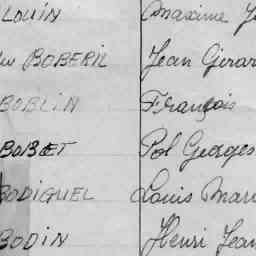 LOUIN Maxime J
du BOBERIL Jean Girar
BOBLIN François
BOBET Pol Georges
BODIGUEL Louis Mari
BODIN Henri Jean